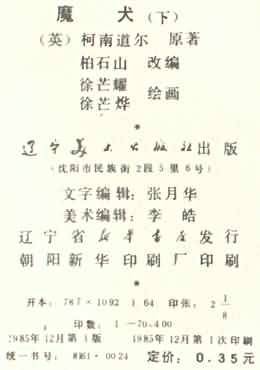 魔 犬(下)
(英)柯南道尔 原著
柏石山 改编
徐芒耀
徐芒烨 绘画
辽宁美术出版社出版
(沈阳市民族街2段5里6号)
文字编辑:张月华
美术编辑:李 皓
辽宁省新华书店发行
朝阳新华印刷厂印刷
开本:787×1092 1/64 印张:2 1/8
印数:1—70,400
1985年12月第1版 1985年12月第1次印刷
统一书号:8161·0024 定价:0.35元